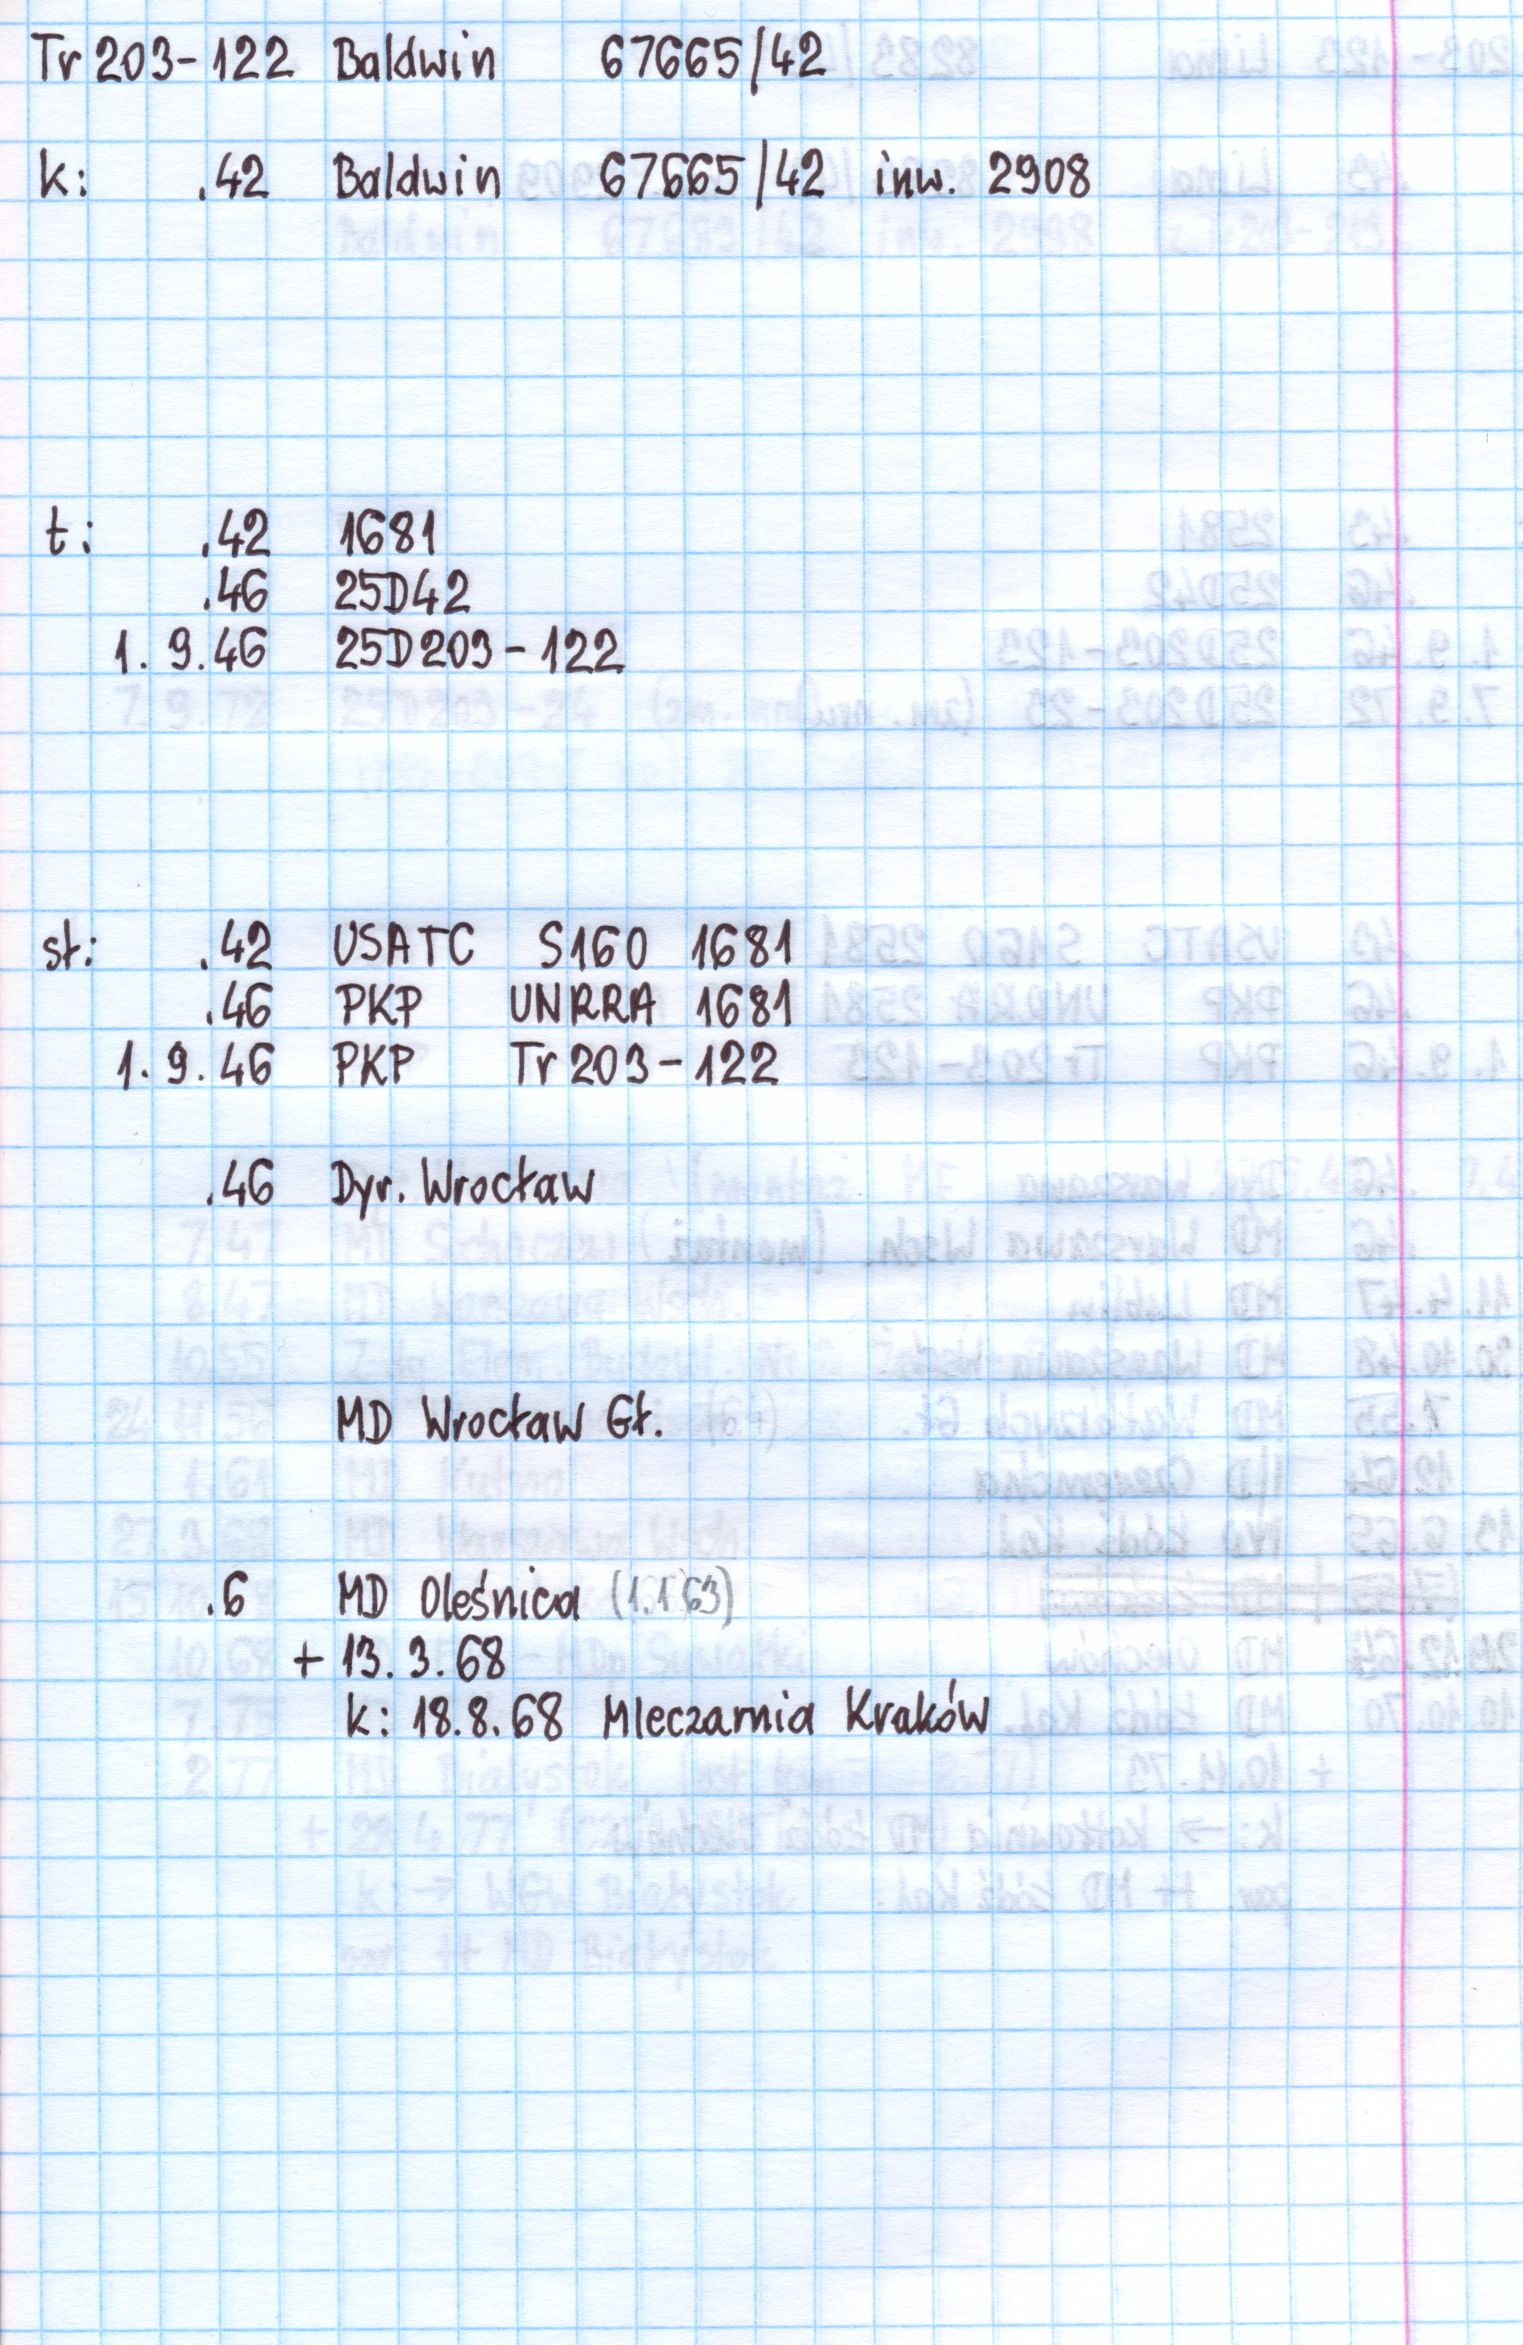 Tr 203-122 Baldwin 67665/42
k: .42 Baldwin 67665/42 inw. 2908
t: .42 1681
.46 25D42
1.9.46 25D203-122
sł: .42 USATC S160 1681
.46 PKP UNRRA 1681
1.9.46 PKP Tr 203-122
.46 Dyr. Wrocław
MD Wrocław Gł.
.6 MD Oleśnica (1.1.63)
+ 13.3.68
k: 18.8.68 Mleczarnia Kraków